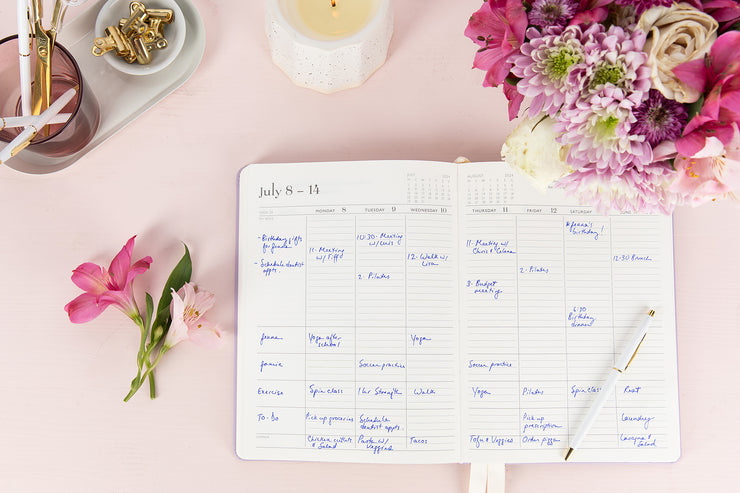 July 8 – 14
JULY 2024
AUGUST 2024
MONDAY 8
TUESDAY 9
WEDNESDAY 10
THURSDAY 11
FRIDAY 12
SATURDAY
JUNE
- Birthday gifts
for Jenna
- Schedule dentist
appts.
11- Meeting
w/ Tiff
10:30- Meeting
w/
2- Pilates
12- Walk w/
Lisa
11- Meeting w/
Chris &
3- Budget
meeting
2- Pilates
*Jenna's
birthday!
6:30
Birthday
dinner
12:30 Brunch
Jenna
Yoga after
school
Yoga
Soccer practice
Soccer practice
Exercise
Spin class
1 hr Strength
Walk
Yoga
Pilates
Spin class
Rest
To-Do
Pick up groceries
Schedule
dentist appts.
Pick up
prescription
Laundry
DINNER
Chicken cutlets
& Salad
Pasta w/
Veggies
Tacos
Tofu & Veggies
Order pizza
Lasagna &
Salad